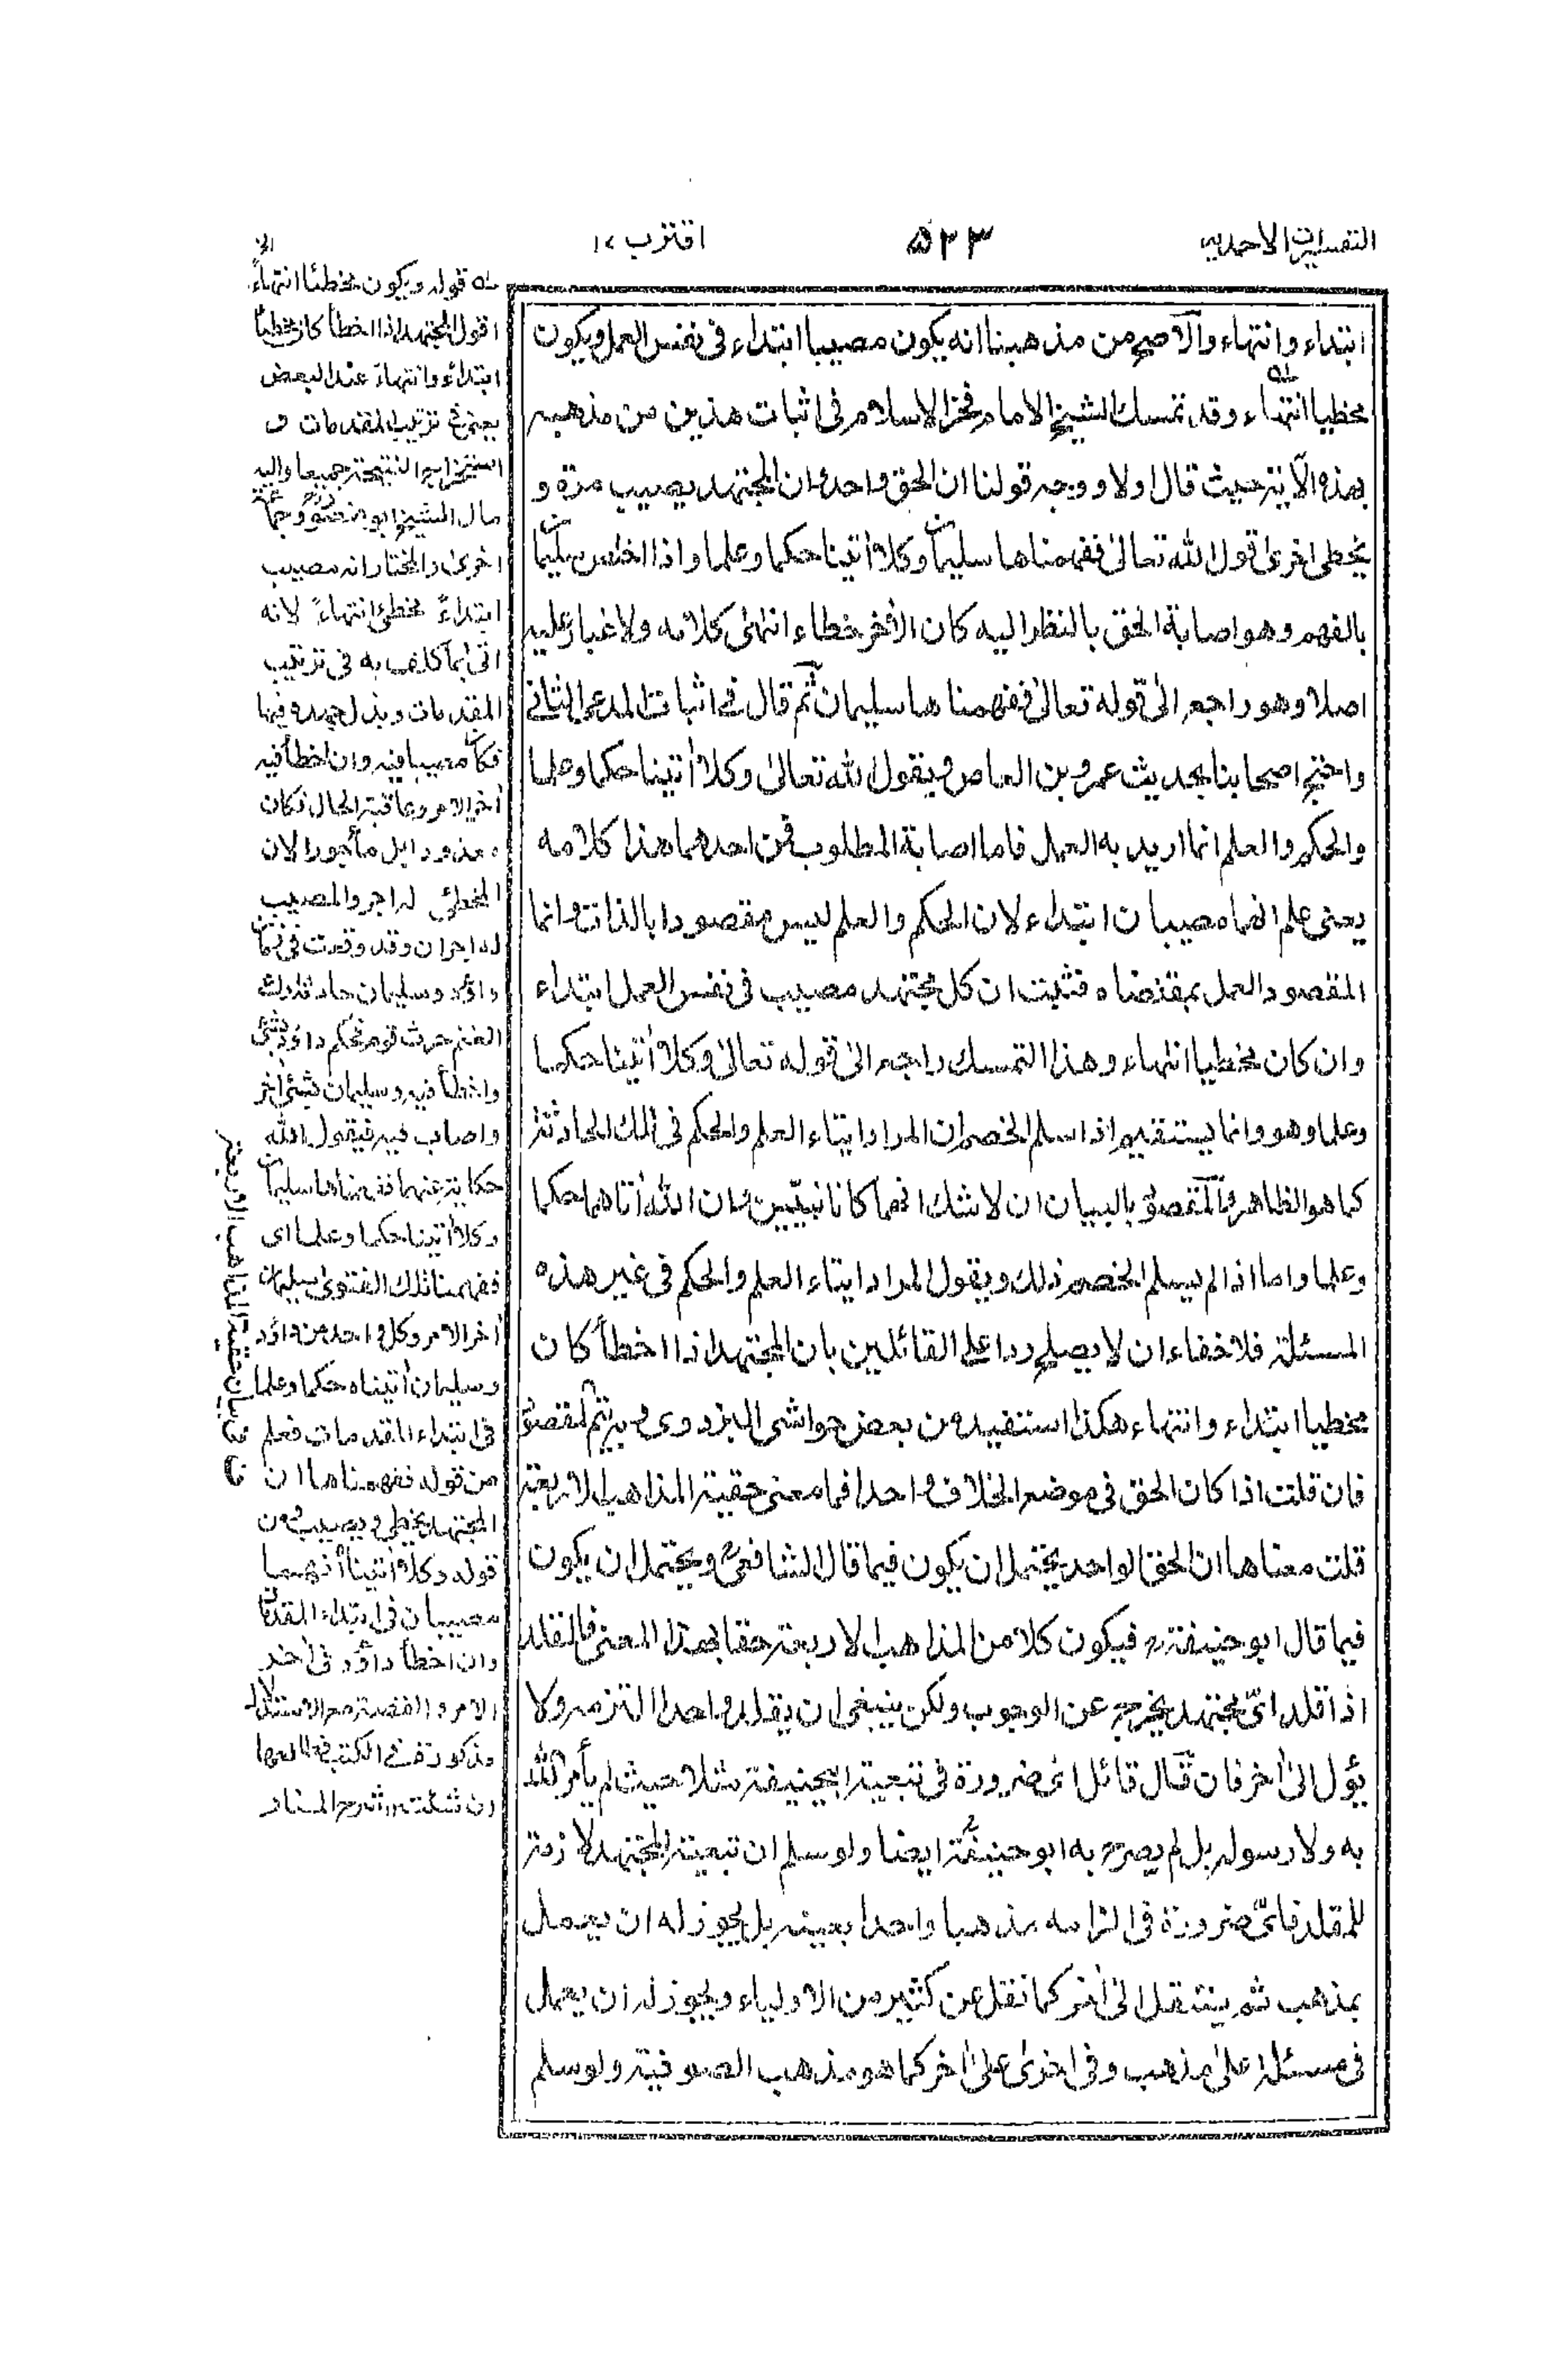 التفسيرات الاحمديه
٥٢٣
اقترب ١٧
ابتداء وانتهاء والاصح من مذهبنا انه يكون مصيبا ابتداء في نفس العمل ويكون
مخطيا انتهاء وقد تمسك الشيخ الامام فخر الاسلام في اثبات هذين من مذهبه
بهذه الآية حيث قال اولا ووجه قولنا ان الحق واحد وان المجتهد يصيب مرة و
يخطى اخرى قول الله تعالى ففهمناها سليمان وكلا أتينا حكما وعلما واذا اختص سليمان
بالفهم وهو اصابة الحق بالنظر اليه كان الأخر خطاء انتهى كلامه ولا غبار عليه
اصلا وهو راجع الى قوله تعالى ففهمناها سليمان ثم قال في اثبات المدعى الثاني
واحتج اصحابنا بحديث عمرو بن العاص وبقول الله تعالى وكلا أتينا حكما وعلما
والحكم والعلم انما اريد به العمل فاما اصابة المطلوب فمن احدهما هذا كلامه
يعنى علم انهما مصيبان ابتداء لان الحكم والعلم ليس مقصودا بالذات وانما
المقصود العمل بمقتضاه فثبت ان كل مجتهد مصيب في نفس العمل ابتداء
وان كان مخطيا انتهاء وهذا التمسك راجع الى قوله تعالى وكلا أتينا حكما
وعلما وهو وانما يستقيم اذا سلم الخصم ان المراد ايتاء العلم والحكم في تلك الحادثة
كما هو الظاهر والمقصود بالبيان ان لا شك انهما كانا نبيّين وان الله أتاهما حكما
وعلما واما اذا لم يسلم الخصم ذلك ويقول المراد ايتاء العلم والحكم في غير هذه
المسئلة فلا خفاء ان لا يصلح ردا على القائلين بان المجتهد اذا اخطأ كان
مخطيا ابتداء وانتهاء هكذا استفيد من بعض حواشى البزدوى وبه يتم المقصود
فان قلت اذا كان الحق في موضع الخلاف واحدا فما معنى حقية المذاهب الاربعة
قلت معناها ان الحق الواحد يحتمل ان يكون فيما قال الشافعى ويحتمل ان يكون
فيما قال ابو حنيفة فيكون كلا من المذاهب الاربعة حقا بهذا المعنى فالمقلد
اذا قلد اىّ مجتهد يخرج عن الوجوب ولكن ينبغى ان يقلد واحدا التزمه ولا
يؤل الى أخر فان قال قائل اى ضرورة في تبعية ابيحنيفة مثلا حيث لم يأمر الله
به ولا رسوله بل لم يصرح به ابو حنيفة ايضا ولو سلم ان تبعية المجتهد لازمة
للمقلد فاىّ ضرورة في الزامه مذهبا واحدا بعينه بل يجوز له ان يعمل
بمذهب ثم ينتقل الى أخر كما نقل عن كثير من الاولياء ويجوز له ان يعمل
في مسئلة على مذهب وفي اخرى على أخر كما هو مذهب الصوفية ولو سلم
له قوله ويكون مخطئا انتهاءً الخ
اقول المجتهد اذا اخطأ كان مخطئا
ابتداء وانتهاءً عند البعض
يعنى في ترتيب المقدمات و
استخراج النتيجة جميعا واليه
مال الشيخ ابو منصور وجماعة
اخرى والمختار انه مصيب
ابتداءً مخطئ انتهاءً لانه
اتى بما كلف به في ترتيب
المقدمات وبذل جهده فيها
فكان مصيبا فيه وان اخطأ في
أخر الامر وعاقبة الحال فكان
معذورا بل مأجورا لان
المخطئ له اجر والمصيب
له اجران وقد وقعت في زمان
داؤد وسليمان حادثة رعى
الغنم حرث قوم فحكم داؤد بشئ
واخطأ فيه وسليمان بشئ أخر
واصاب فيه فيقول الله
حكاية عنهما ففهمناها سليمان
وكلا أتينا حكما وعلما اى
ففهمنا تلك الفتوى سليمان
أخر الامر وكل واحد من داؤد
وسليمان أتيناه حكما وعلما
في ابتداء المقدمات فعلم
من قوله ففهمناها ان
المجتهد يخطى ويصيب ومن
قوله وكلا أتينا انهما
مصيبان في ابتداء المقدمات
وان اخطأ داؤد في أخر
الامر والقصة مع الاستدلال
مذكورة في الكتب فطالعها
ان شئت شرح المنار
ف بيان حقية المذاهب الاربعة